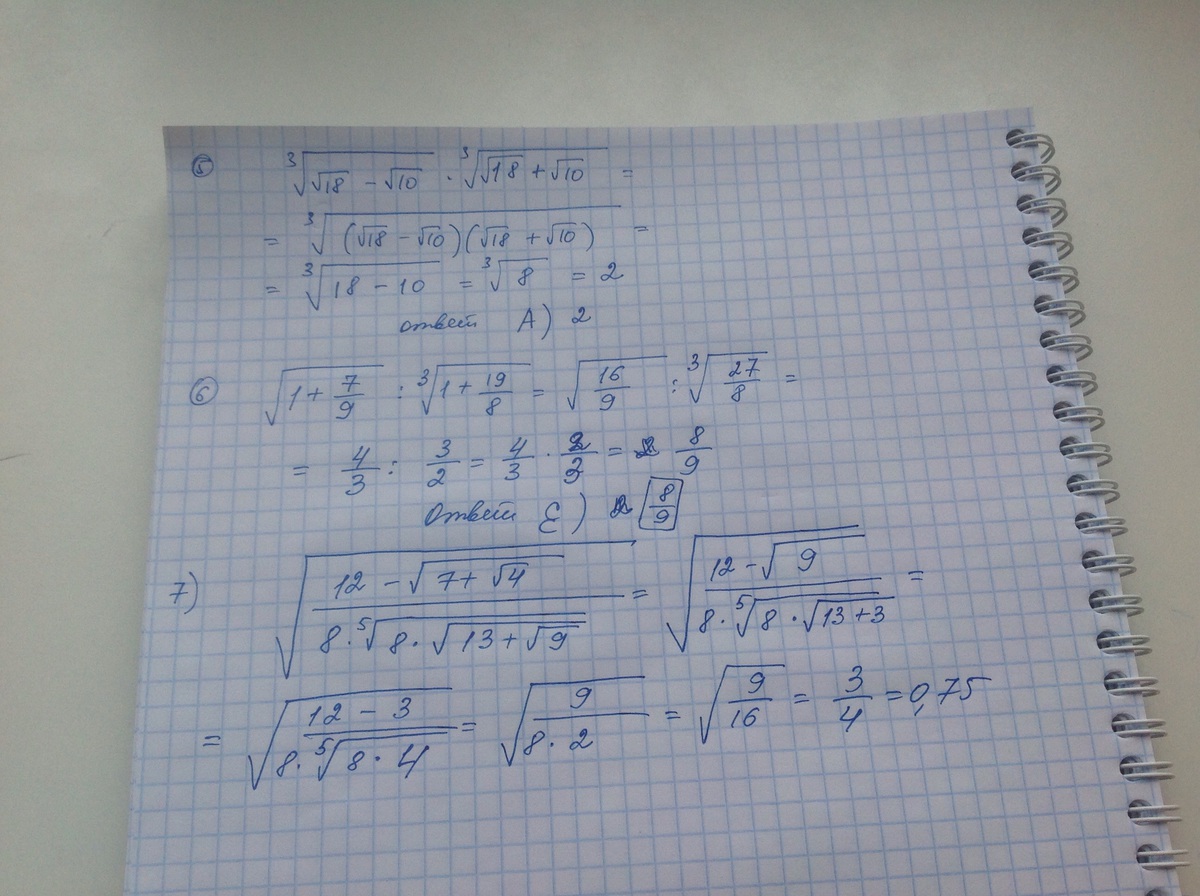 ⑤ ∛(√18 − √10) · ∛(√18 + √10) =
= ∛((√18 − √10)(√18 + √10)) =
= ∛(18 − 10) = ∛8 = 2
ответ А) 2
⑥ √(1 + 7/9) : ∛(1 + 19/8) = √(16/9) : ∛(27/8) =
= 4/3 : 3/2 = 4/3 · 2/3 = 8/9
Ответ Е) 8/9
7) √((12 − √(7 + √4))/(8 · ⁵√(8 · √(13 + √9)))) = √((12 − √9)/(8 · ⁵√(8 · √(13 + 3)))) =
= √((12 − 3)/(8 · ⁵√(8 · 4))) = √(9/(8 · 2)) = √(9/16) = 3/4 = 0,75